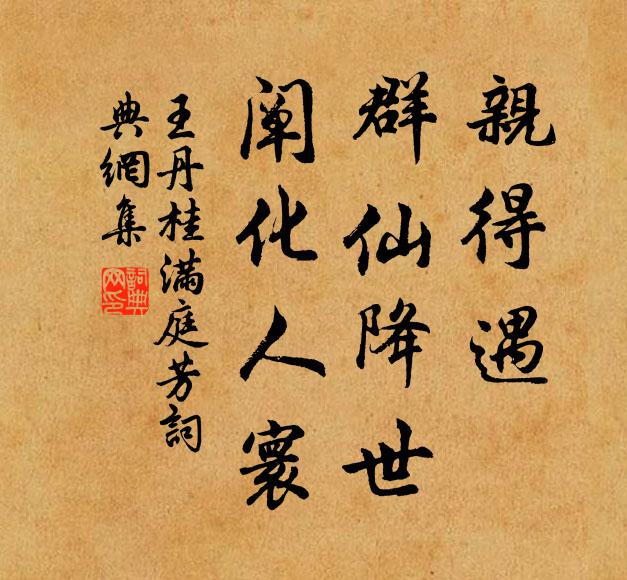 親得遇
群仙降世
闡化人寰
王丹桂滿庭芳詞
典網集
詞典網印